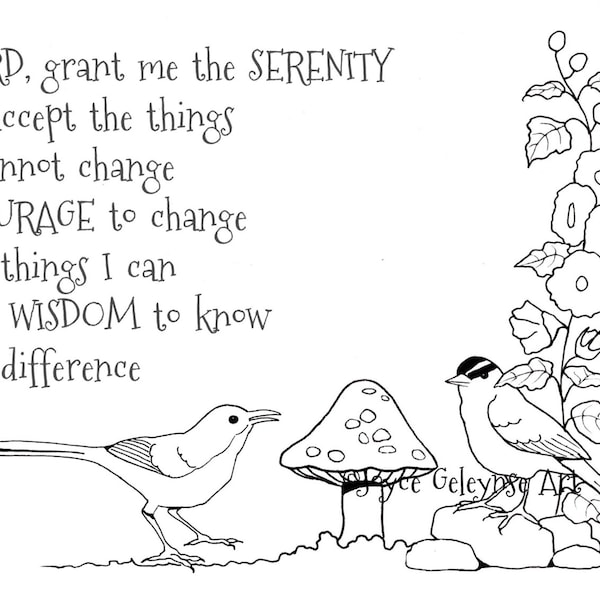 RD, grant me the SERENITY
accept the things
nnot change
URAGE to change
things I can
WISDOM to know
difference
©Joyce Geleynse Art